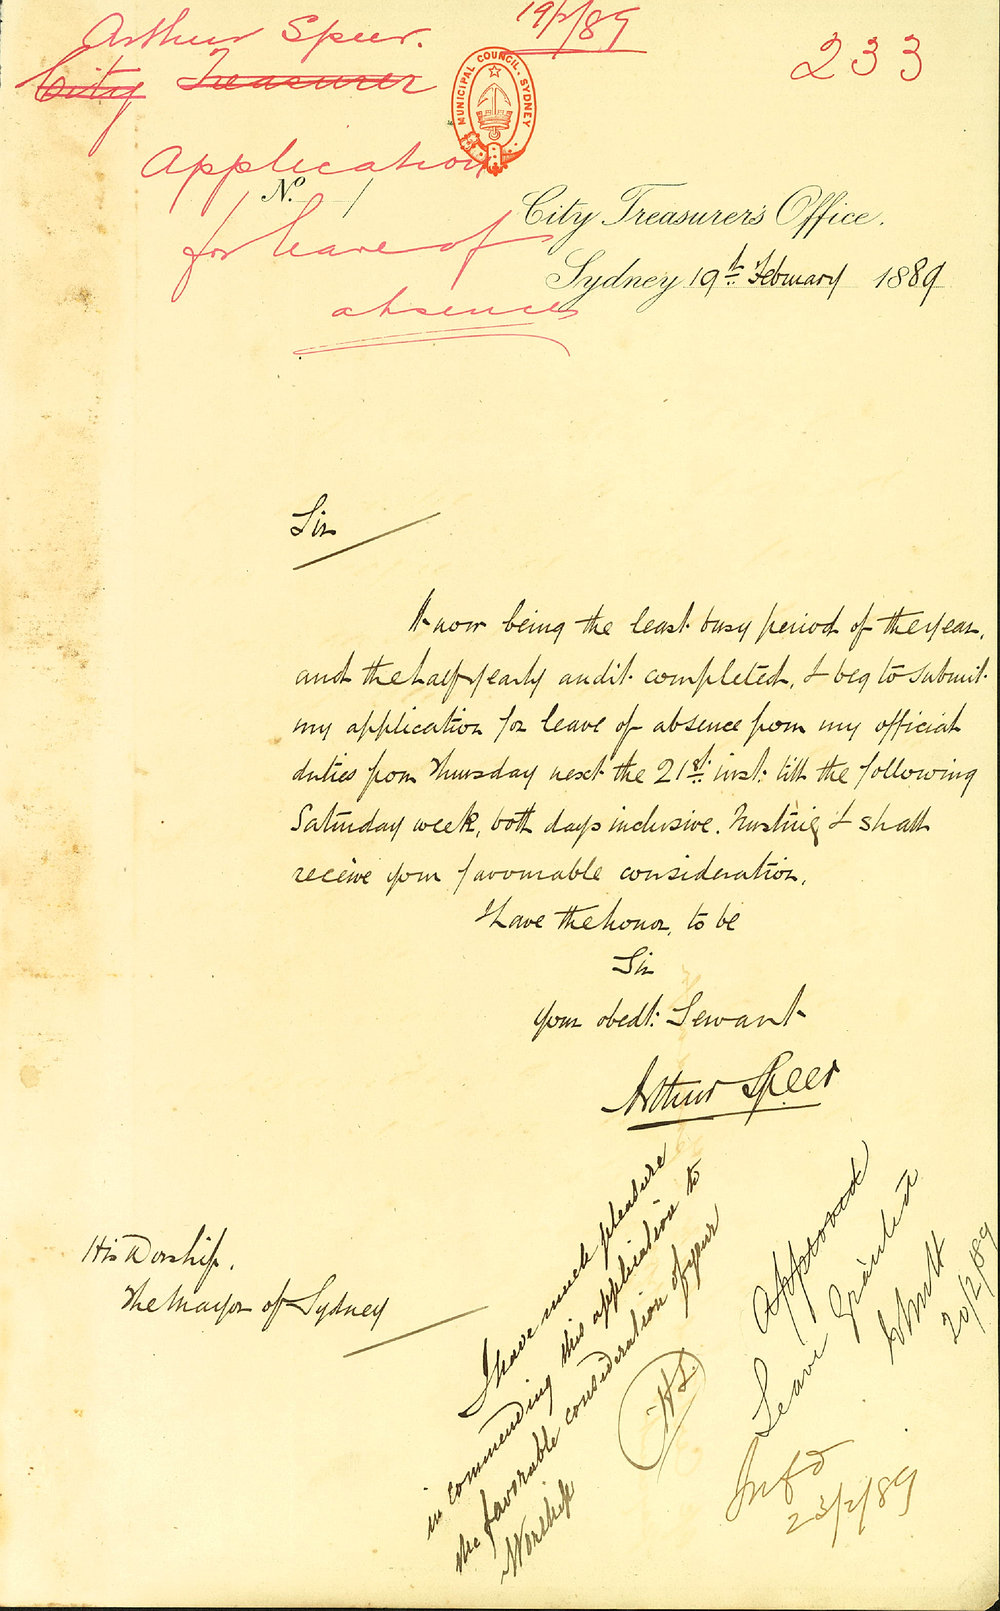 Arthur Speer.
City Treasurer
19/2/89
233
MUNICIPAL COUNCIL. SYDNEY
Application
for leave of
absence
No. 1
City Treasurer's Office.
Sydney 19th February 1889
Sir
It now being the least busy period of the year,
and the half yearly audit completed, I beg to submit
my application for leave of absence from my official
duties from Thursday next the 21st: inst: till the following
Saturday week, both days inclusive. Trusting I shall
receive your favourable consideration,
I have the honor, to be
Sir
Your obedt: Servant
Arthur Speer
His Worship,
The Mayor of Sydney
I have much pleasure
in commending this application to
the favorable consideration of your
Worship
Approved
Leave Granted
20/2/89
Infd
23/2/89